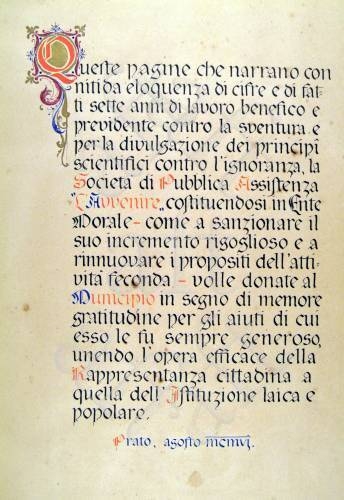 Queste pagine che narrano con
nitida eloquenza di cifre e di fat-
ti sette anni di lavoro benefico e
previdente contro la sventura e
per la divulgazione dei principi
scientifici contro l'ignoranza, la
Società di Pubblica Assistenza
"L'Avvenire", costituendosi in Ente
Morale - come a sanzionare il
suo incremento rigoglioso e a
rinnuovare i propositi dell'atti-
vità feconda - volle donate al
Municipio in segno di memore
gratitudine per gli aiuti di cui
esso le fu sempre generoso,
unendo l'opera efficace della
Rappresentanza cittadina a
quella dell'Istituzione laica e
popolare.
Prato, agosto mcmvi.